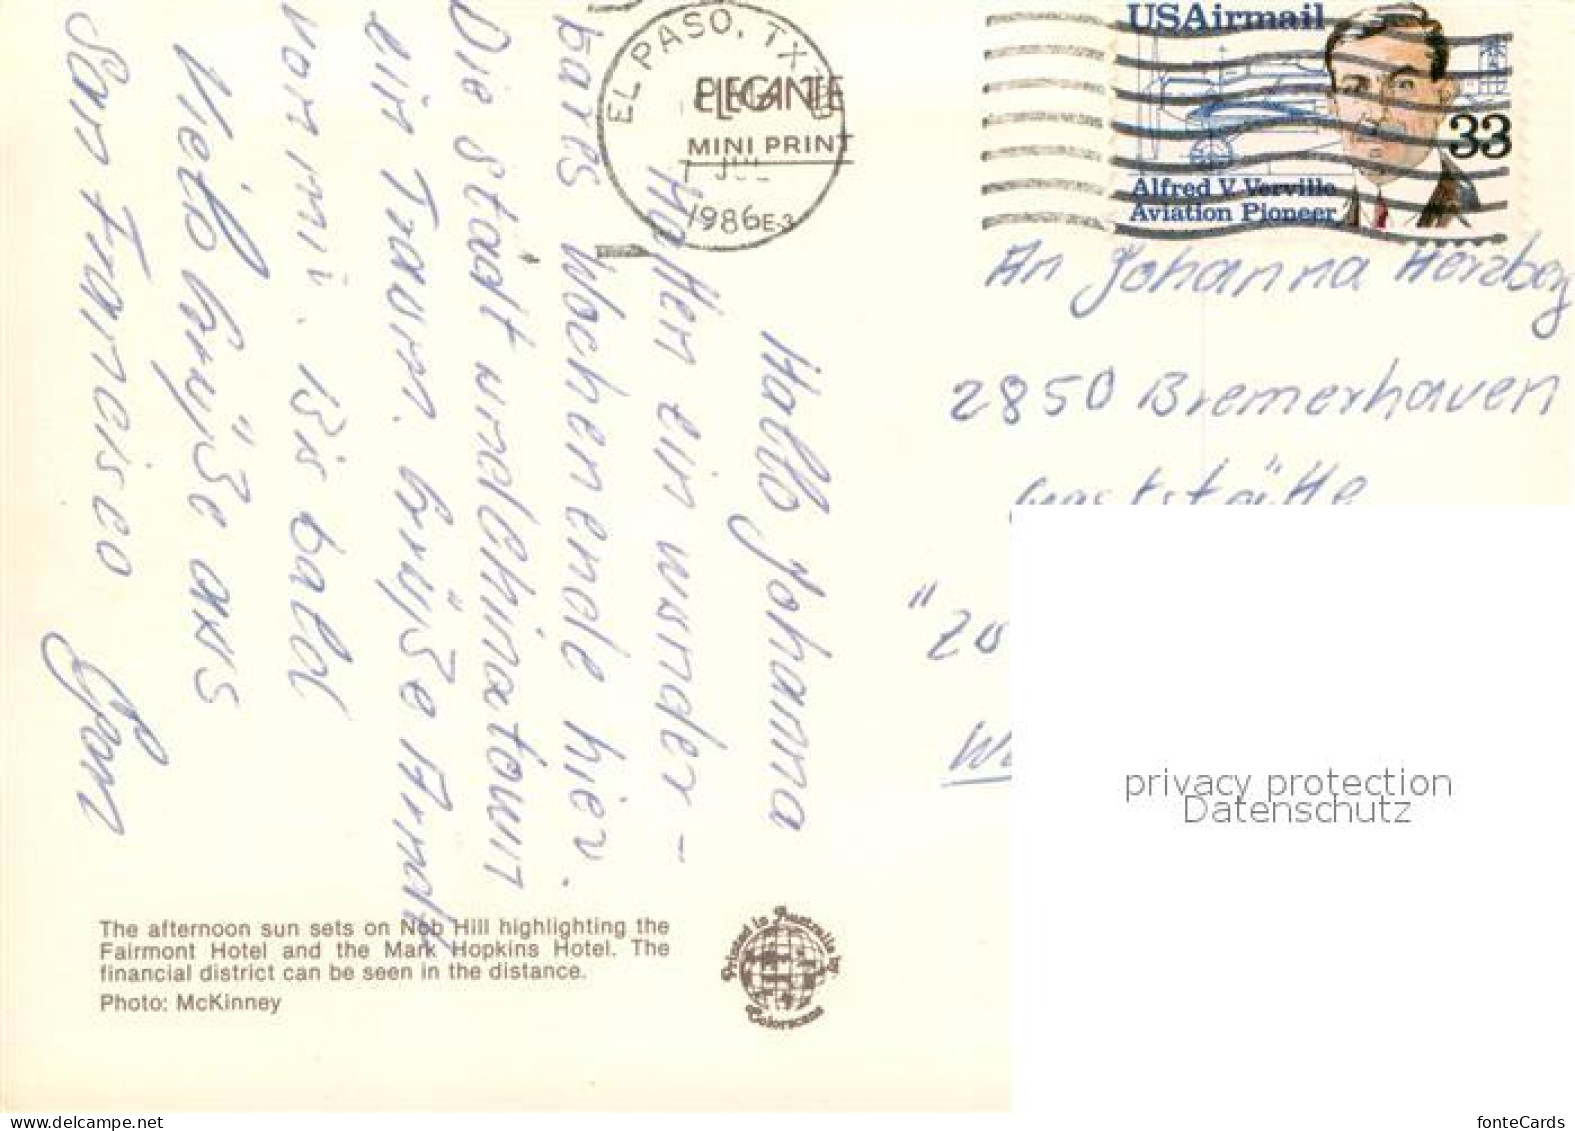 USAirmail
33
Alfred V. Verville
Aviation Pioneer
EL PASO, TX
ELEGANTE
MINI PRINT
JUL
1986
E-3
Hallo Johanna
Hatten ein wunder-
bares Wochenende hier.
Die Stadt und Chinatown
ein Traum. Grüße Arndt
von mir. Bis bald
Viele Grüße aus
San Francisco
An Johanna Herzberg
2850 Bremerhaven
Gaststätte
"Zu
The afternoon sun sets on Nob Hill highlighting the
Fairmont Hotel and the Mark Hopkins Hotel. The
financial district can be seen in the distance.
Photo: McKinney
Printed in Australia by:
Colorscans
privacy protection
Datenschutz
my.delcampe.net
fonteCards